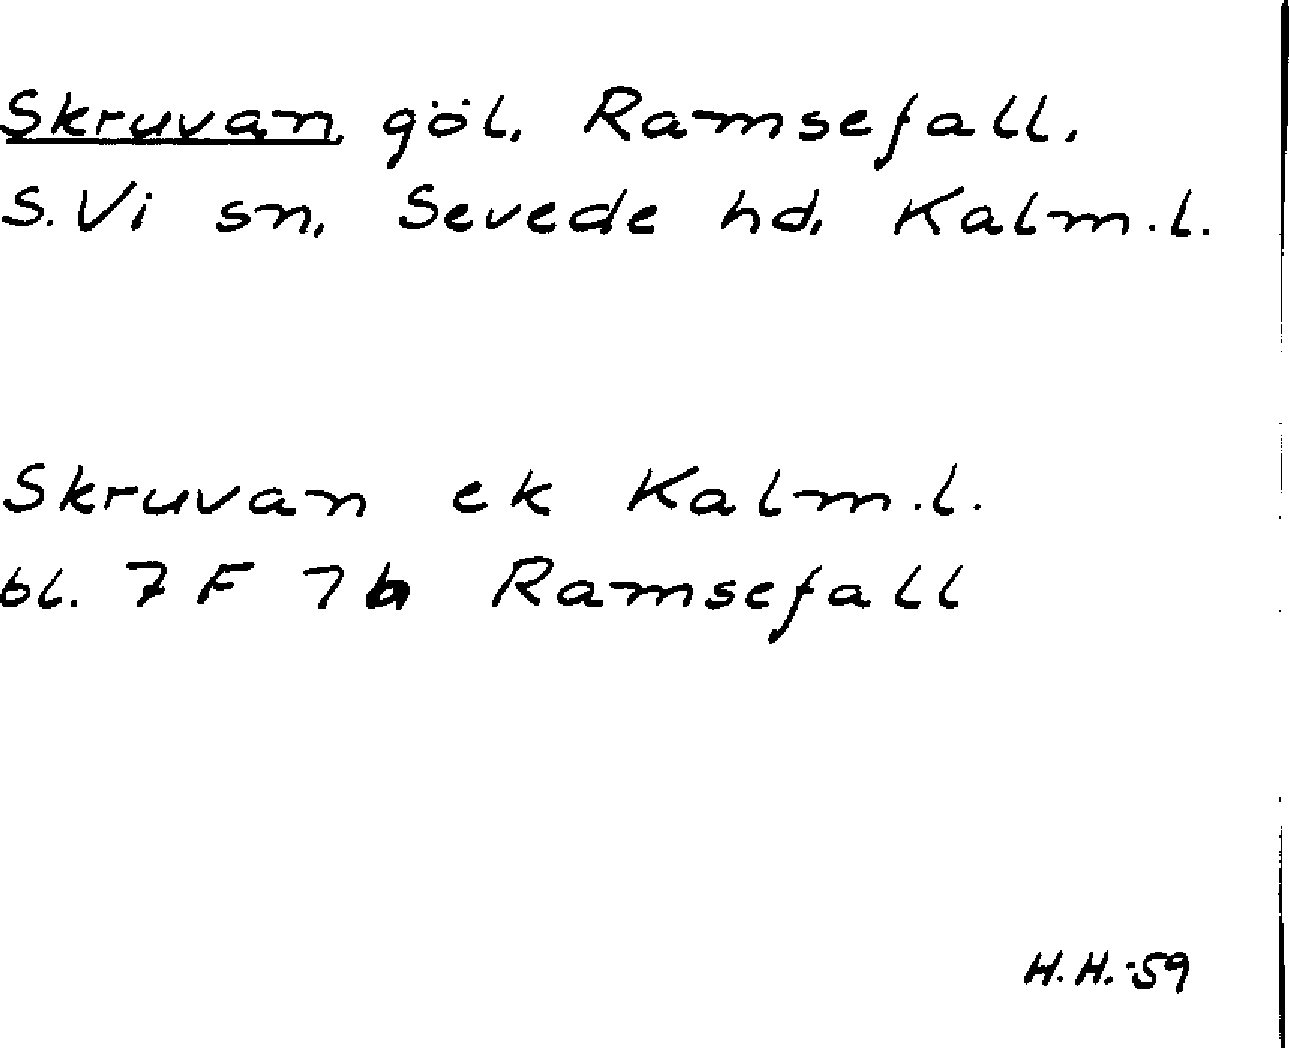 Skruvan, göl, Ramsefall,
S. Vi sn, Sevede hd, Kalm.l.
Skruvan ek Kalm.l.
bl. 7 F 7 b Ramsefall
H.H.-59